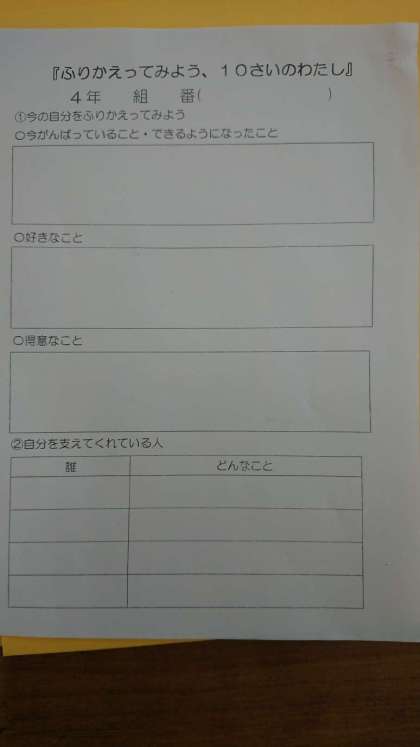 『ふりかえってみよう、１０さいのわたし』
４年　組　番(　　　　　　　　)
①今の自分をふりかえってみよう
○今がんばっていること・できるようになったこと
○好きなこと
○得意なこと
②自分を支えてくれている人
誰　どんなこと